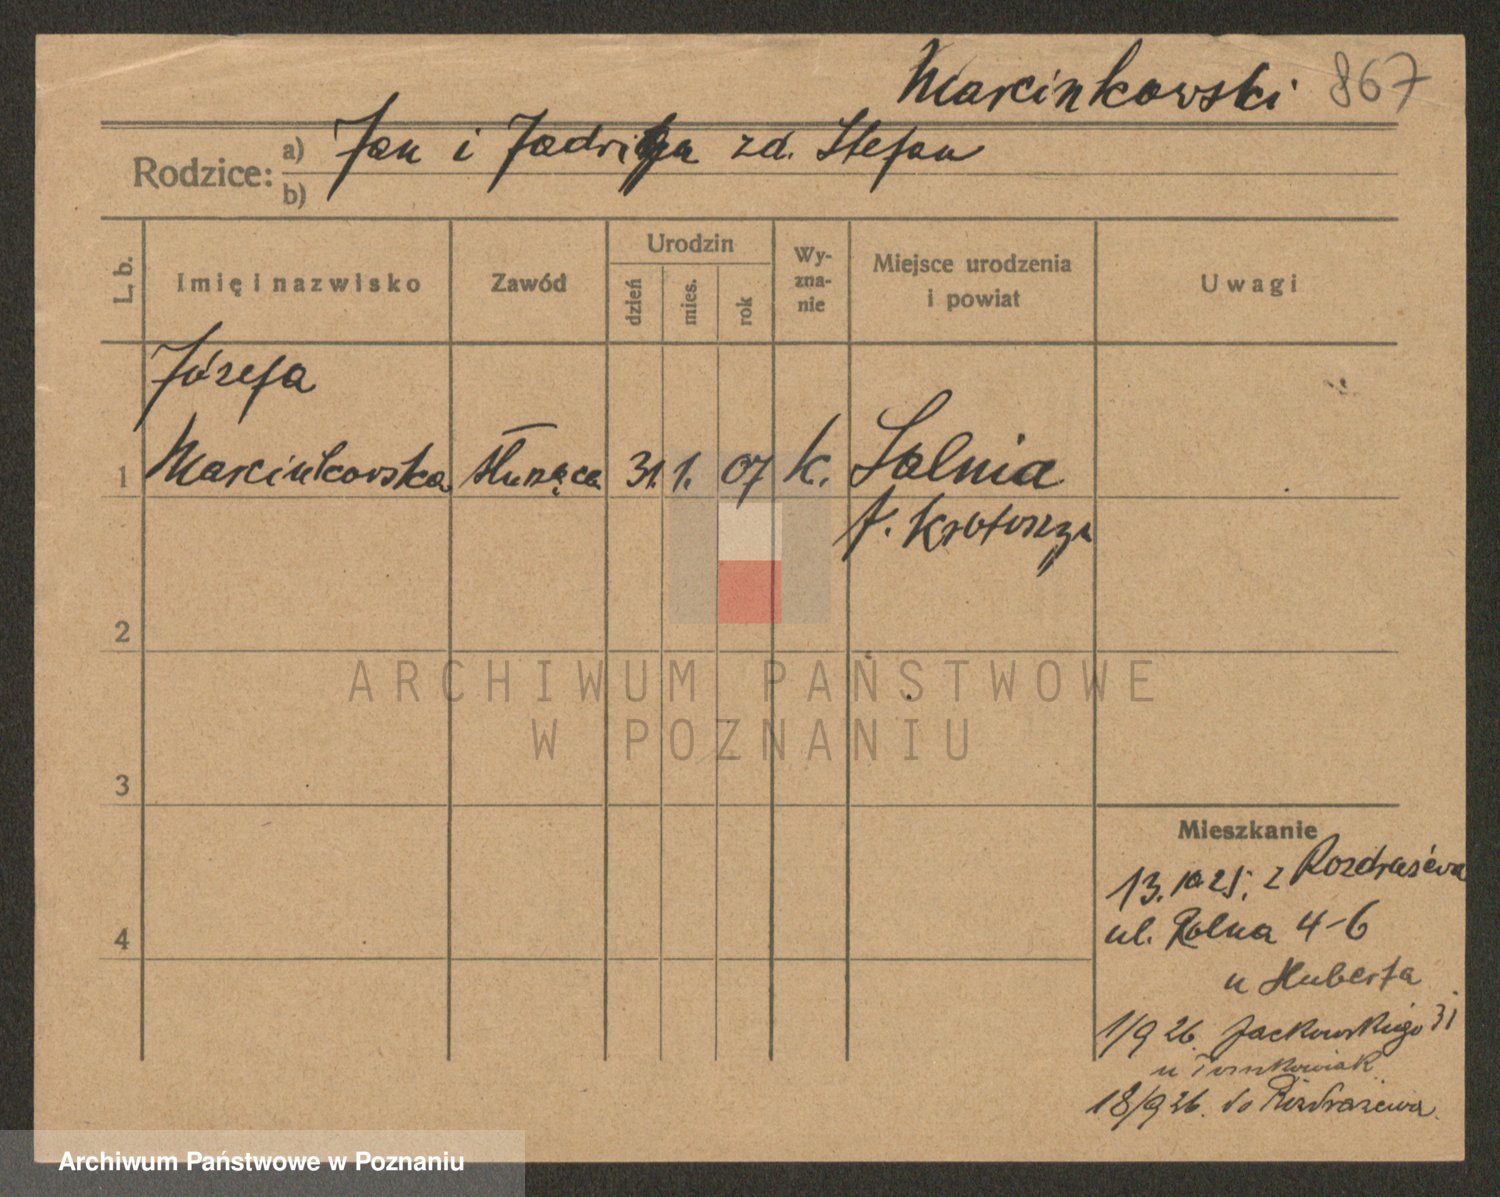 Marcinkowski 867
Rodzice: a) Jan i Jadwiga zd. Stefan
b)
L. b. Imię i nazwisko Zawód Urodzin dzień mies. rok Wy-zna-nie Miejsce urodzenia i powiat Uwagi
Józefa
1 Marcinkowska służąca 31. 1. 07 k. Salnia
p. Krotoszyn
2
ARCHIWUM PAŃSTWOWE
W POZNANIU
3
Mieszkanie
13.10 25. z Rozdrażewa
ul. Rolna 4-6
4
u Huberta
1/9 26. Jackowskiego 31
u Tomkowiak
18/9 26. do Rozdrażewa.
Archiwum Państwowe w Poznaniu